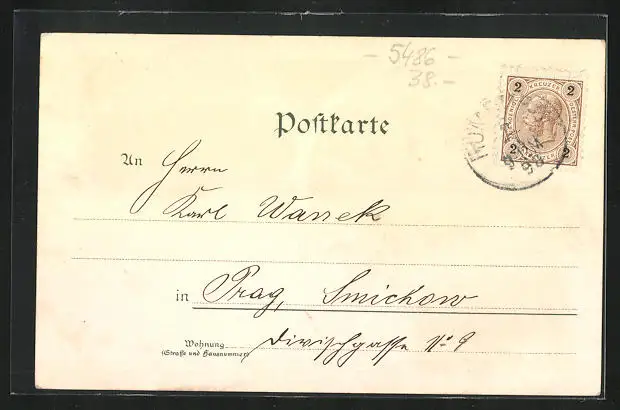 5486
38.-
2 KREUZER 2
2 2
Postkarte
An Herrn
Karl Wanek
in Prag, Smichow
Wohnung
(Straße und Hausnummer)
Divischgasse No 9